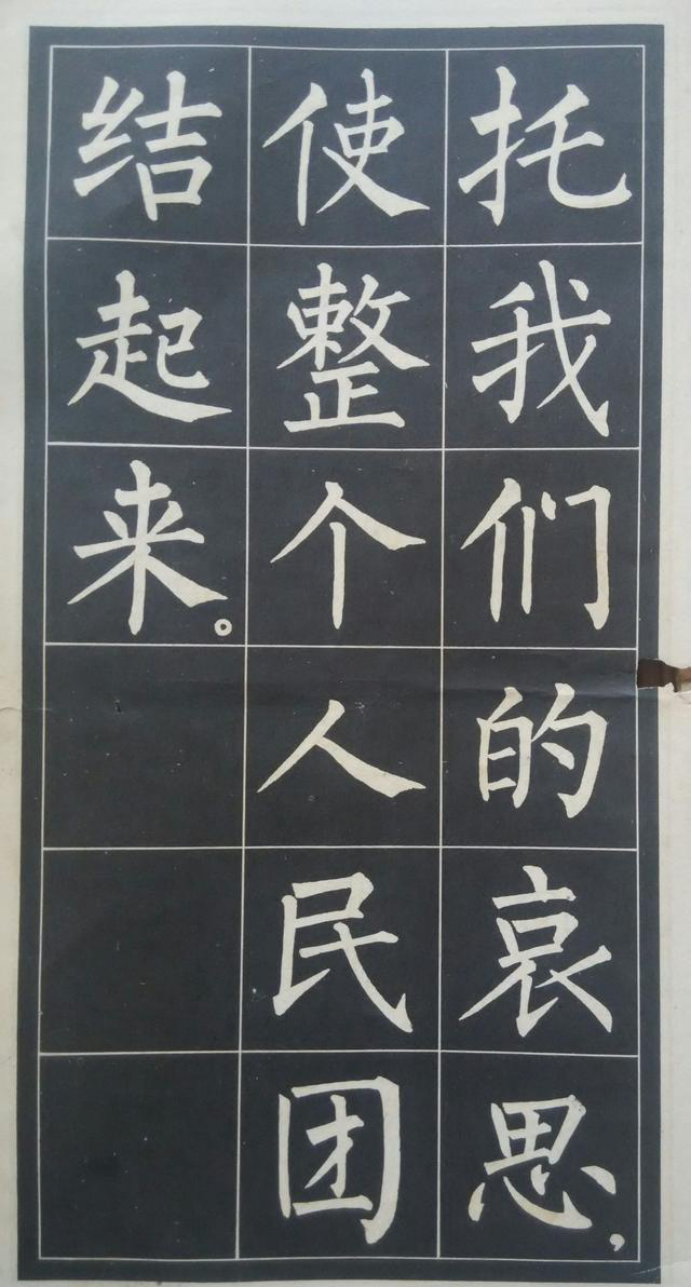 托我们的哀思,
使整个人民团
结起来。